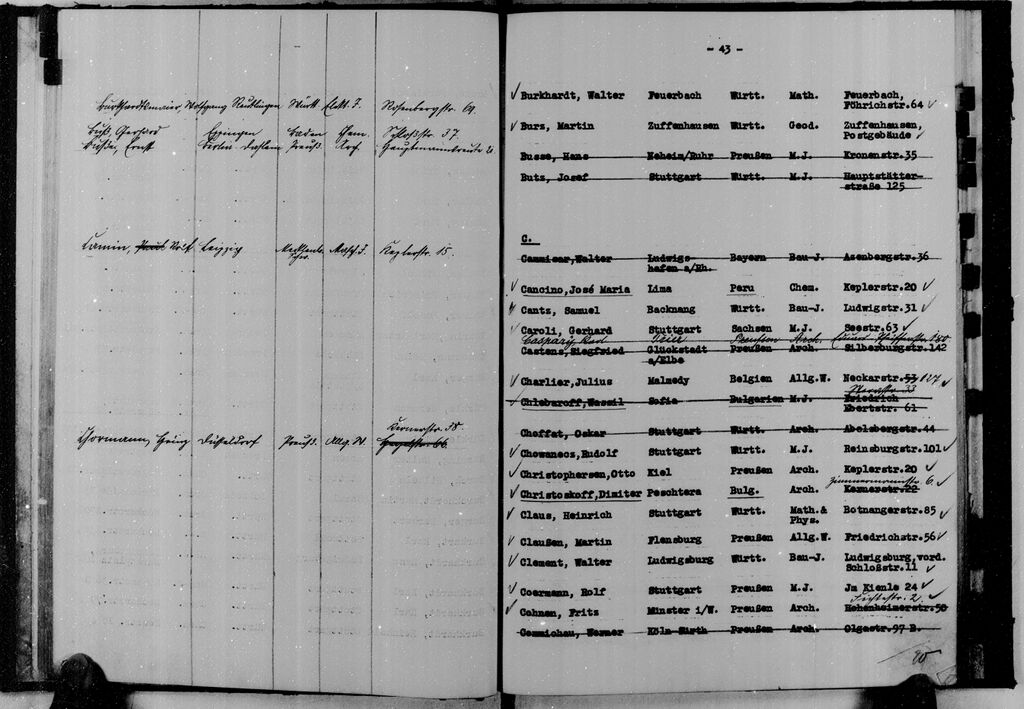 Burkhardtsmaier, Wolfgang Reutlingen Württ. Elekt. J. Rosenbergstr. 69.
Buß, Gerhard Eppingen Baden Chem. Schloßstr. 37.
Busse, Ernst Berlin Dahlem Preuß. Arch.
Camin, Wolf Leipzig Masch. J. Keplerstr. 15.
Kernerstr. 38
Düsseldorf Preuß. Allg. W.
- 43 -
Burkhardt, Walter Feuerbach Württ. Math. Feuerbach,
Föhrichstr.64
Burz, Martin Zuffenhausen Württ. Geod. Zuffenhausen,
Postgebäude
Busse, Hans Neheim/Ruhr Preußen M.J. Kronenstr.35
Butz, Josef Stuttgart Württ. M.J. Hauptstätter-
straße 125
C.
Cammisar,Walter Ludwigs- Bayern Bau-J. Azenbergstr.36
hafen a/Rh.
Cancino,José Maria Lima Peru Chem. Keplerstr.20
Cantz, Samuel Backnang Württ. Bau-J. Ludwigstr.31
Caroli, Gerhard Stuttgart Sachsen M.J. Seestr.63
Caspary, Karl Trier Preußen Arch.
Castens,Siegfried Glückstadt Preußen Arch. Silberburgstr.142
a/Elbe
Charlier,Julius Malmedy Belgien Allg.W. Neckarstr.53 127
Chlebaroff,Wassil Sofia Bulgarien M.J. Friedrich
Ebertstr. 61
Choffat, Oskar Stuttgart Württ. Arch. Abelsbergstr.44
Chowanecz,Rudolf Stuttgart Württ. M.J. Reinsburgstr.101
Christophersen,Otto Kiel Preußen Arch. Keplerstr.20
Zimmermannstr. 6.
Christoskoff,Dimiter Peschtera Bulg. Arch. Kernerstr.22
Claus, Heinrich Stuttgart Württ. Math.& Botnangerstr.85
Phys.
Claußen, Martin Flensburg Preußen Allg.W. Friedrichstr.56
Clement, Walter Ludwigsburg Württ. Bau-J. Ludwigsburg,vord.
Schloßstr.11
Coermann, Rolf Stuttgart Preußen M.J. Jm Kienle 24
Fichtestr. 2.
Cohnen, Fritz Münster i/W. Preußen Arch. Hohenheimerstr.58
Commichau, Werner Köln Mürth Preußen Arch. Olgastr.97 B.